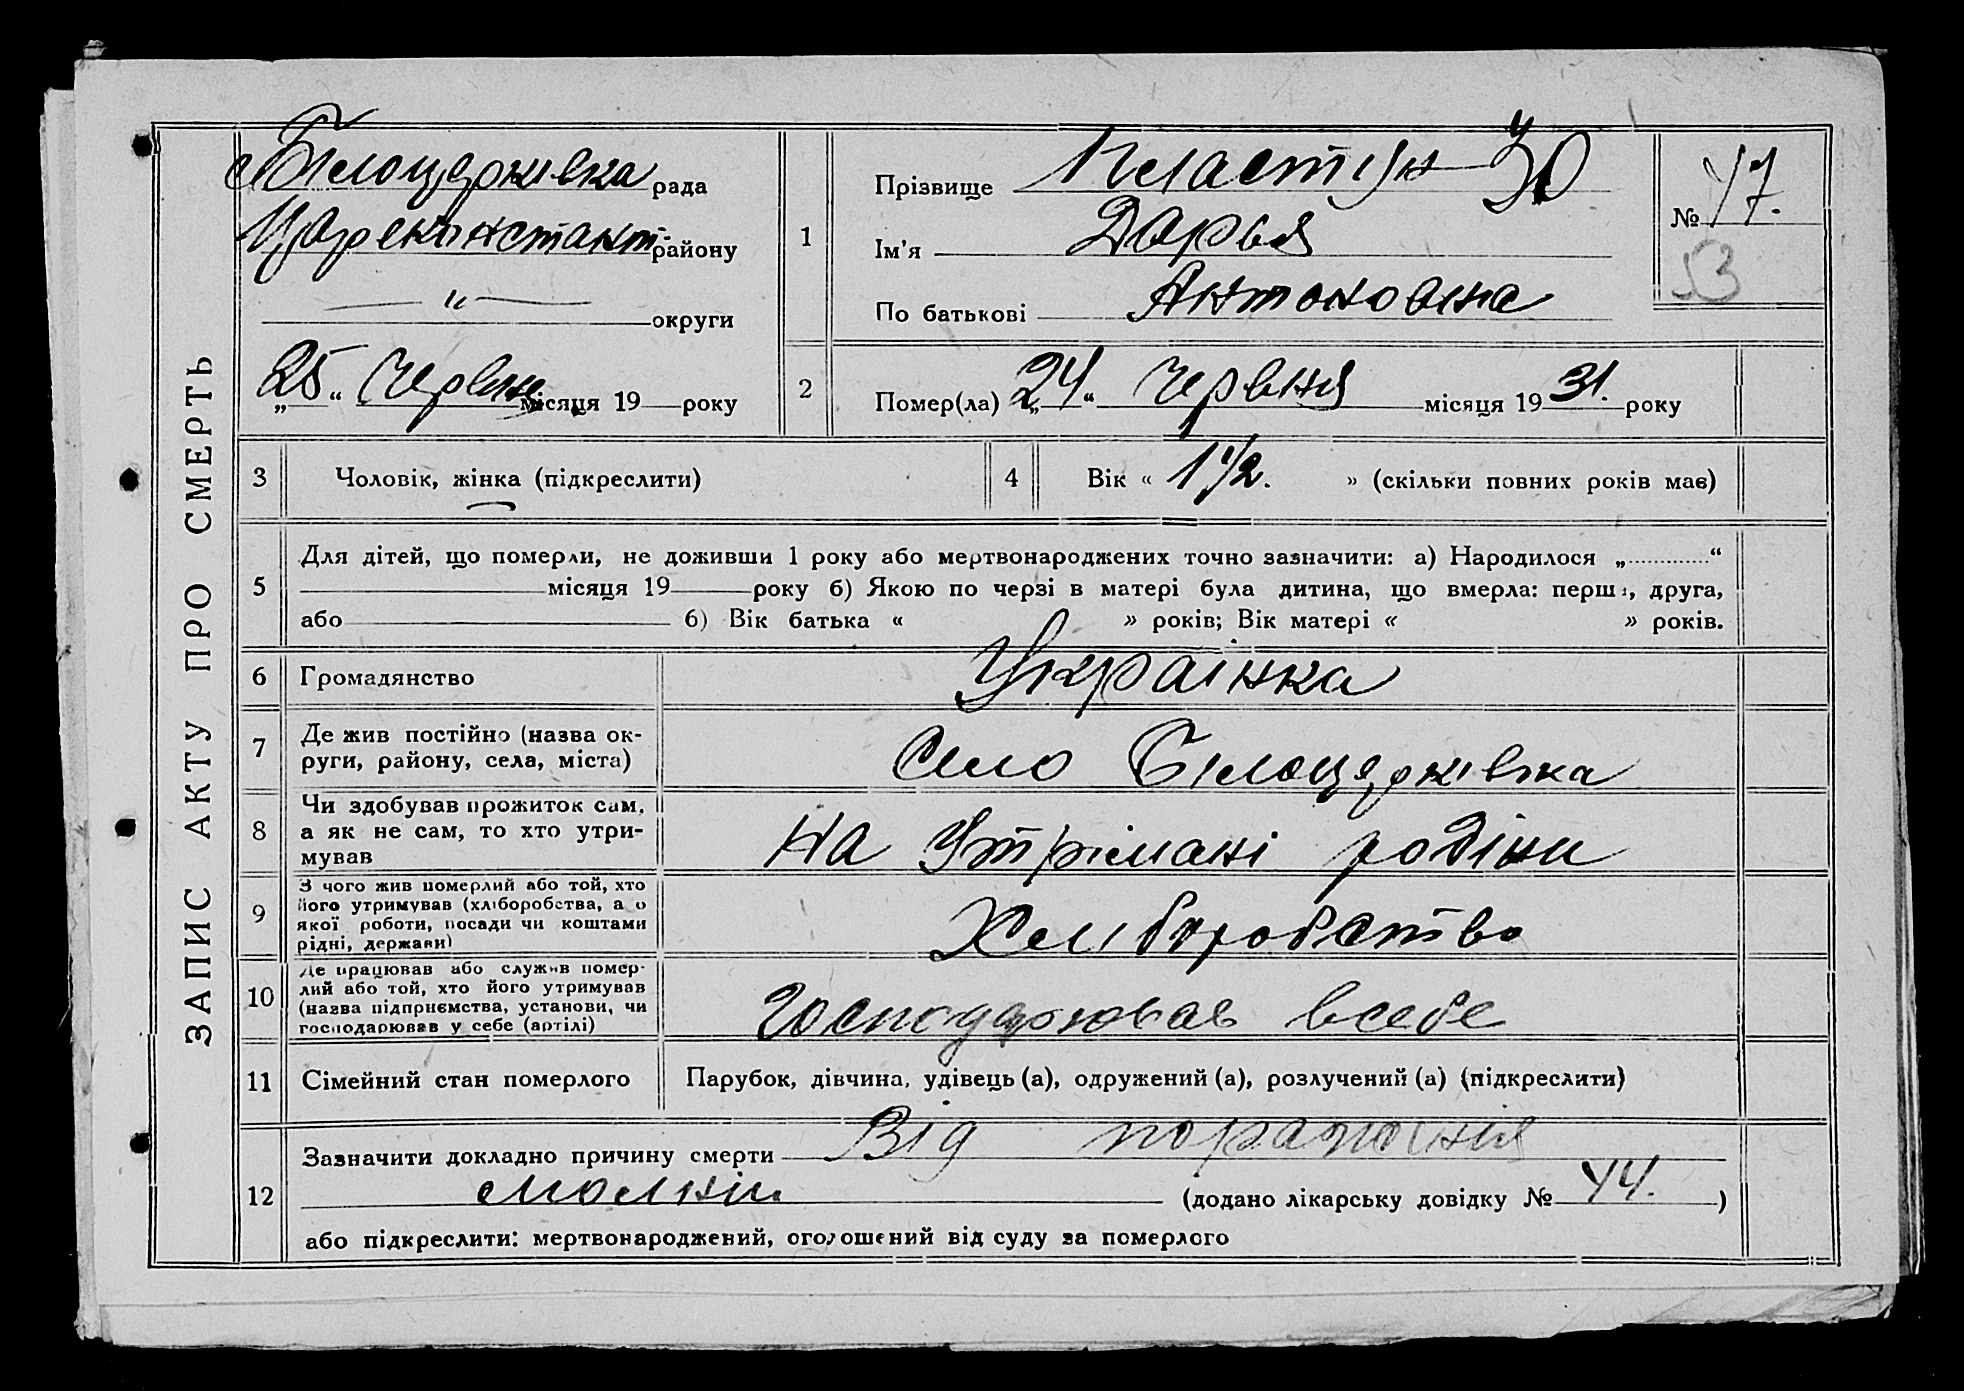 ЗАПИС АКТУ ПРО СМЕРТЬ
с. Білоцерківка рада
Царекнстант. району
— " — округи
„25“ Червня місяця 19 року
1
Прізвище Пластун
Ім'я Дарья
По батькові Антоновна
№ 47.
53
2
Помер(ла) „24“ Червня місяця 1931. року
3 Чоловік, жінка (підкреслити)
4 Вік « 1 1/2. » (скільки повних років має)
5
Для дітей, що померли, не доживши 1 року або мертвонароджених точно зазначити: а) Народилося „ “
місяця 19 року б) Якою по черзі в матері була дитина, що вмерла: перша, друга,
або б) Вік батька « » років; Вік матері « » років.
6 Громадянство Українка
7 Де жив постійно (назва ок-
руги, району, села, міста)
Село Білоцерківка
8 Чи здобував прожиток сам,
а як не сам, то хто утри-
мував
На Утрімані родіни
9 З чого жив померлий або той, хто
його утримував (хліборобства, а о
якої роботи, посади чи коштами
рідні, держави)
Хліборобство
10 Де працював або служив помер-
лий або той, хто його утримував
(назва підприємства, установи, чи
господарював у себе (артілі)
Господарював всебе
11 Сімейний стан померлого Парубок, дівчина, удівець (а), одружений (а), розлучений (а) (підкреслити)
12
Зазначити докладно причину смерти Від
молніи (додано лікарську довідку № 44. )
або підкреслити: мертвонароджений, оголошений від суду за померлого